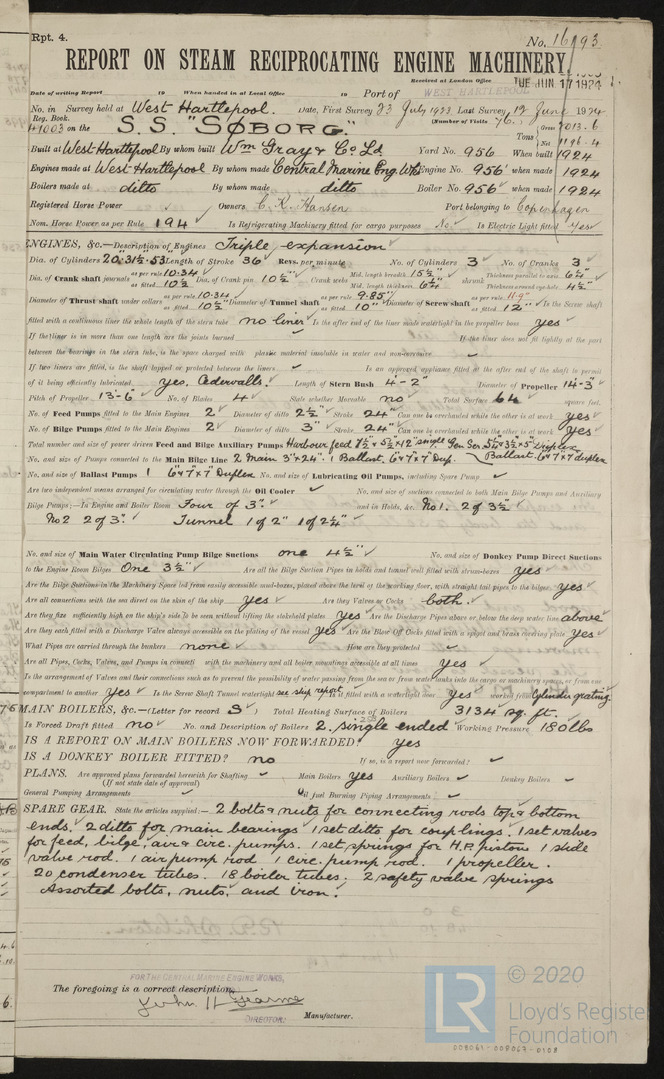 Rpt. 4.
No. 16193
REPORT ON STEAM RECIPROCATING ENGINE MACHINERY.
Received at London Office TUE. JUN. 17 1924
Date of writing Report 19 When handed in at Local Office 19 Port of WEST HARTLEPOOL
No. in Survey held at West Hartlepool. Date, First Survey 23 July 1923 Last Survey 12 June 1924
Reg. Book. (Number of Visits 76.)
41003 on the S.S. "SØBORG." Tons Gross 2013.6 Net 1196.4
Built at West Hartlepool By whom built Wm Gray & Co Ld Yard No. 956 When built 1924
Engines made at West Hartlepool By whom made Central Marine Eng. Wks Engine No. 956 when made 1924
Boilers made at ditto By whom made ditto Boiler No. 956 when made 1924
Registered Horse Power Owners C. K. Hansen Port belonging to Copenhagen
Nom. Horse Power as per Rule 194 Is Refrigerating Machinery fitted for cargo purposes No. Is Electric Light fitted Yes
ENGINES, &c.—Description of Engines Triple expansion
Dia. of Cylinders 20".31½".53" Length of Stroke 36" Revs. per minute No. of Cylinders 3 No. of Cranks 3
Dia. of Crank shaft journals as per rule 10.34 as fitted 10½ Dia. of Crank pin 10½" Crank webs Mid. length breadth 15½" Mid. length thickness 6¼" shrunk Thickness parallel to axis 6¼" Thickness around eye hole 4½"
Diameter of Thrust shaft under collars as per rule 10.34 as fitted 10½" Diameter of Tunnel shaft as per rule 9.85" as fitted 10" Diameter of Screw shaft as per rule 11.9" as fitted 12" Is the Screw shaft
fitted with a continuous liner the whole length of the stern tube no liner Is the after end of the liner made watertight in the propeller boss yes
If the liner is in more than one length are the joints burned If the liner does not fit tightly at the part
between the bearings in the stern tube, is the space charged with a plastic material insoluble in water and non-corrosive
If two liners are fitted, is the shaft lapped or protected between the liners Is an approved appliance fitted at the after end of the shaft to permit
of it being efficiently lubricated yes, Cedervalls. Length of Stern Bush 4'-2" Diameter of Propeller 14'-3"
Pitch of Propeller 13'-6" No. of Blades 4 State whether Moveable no Total Surface 64 square feet.
No. of Feed Pumps fitted to the Main Engines 2 Diameter of ditto 2½" Stroke 24" Can one be overhauled while the other is at work yes
No. of Bilge Pumps fitted to the Main Engines 2 Diameter of ditto 3" Stroke 24" Can one be overhauled while the other is at work yes
Total number and size of power driven Feed and Bilge Auxiliary Pumps Harbour feed 7½"×5½"×12" single. Gen. Ser. 5¼"×3½"×5" Duplex
No. and size of Pumps connected to the Main Bilge Line 2 Main 3"×24". 1 Ballast. 6"×7"×7" Dup. Ballast. 6"×7"×7" duplex
No. and size of Ballast Pumps 1 6"×7"×7" Duplex No. and size of Lubricating Oil Pumps, including Spare Pump
Are two independent means arranged for circulating water through the Oil Cooler No. and size of suctions connected to both Main Bilge Pumps and Auxiliary
Bilge Pumps;—In Engine and Boiler Room Four of 3". and in Holds, &c. No1. 2 of 3½"
No2 2 of 3". Tunnel 1 of 2" 1 of 2½"
No. and size of Main Water Circulating Pump Bilge Suctions one 4½" No. and size of Donkey Pump Direct Suctions
to the Engine Room Bilges One 3½" Are all the Bilge Suction Pipes in holds and tunnel well fitted with strum-boxes yes
Are the Bilge Suctions in the Machinery Space led from easily accessible mud-boxes, placed above the level of the working floor, with straight tail pipes to the bilges yes
Are all connections with the sea direct on the skin of the ship yes Are they Valves or Cocks both
Are they fixed sufficiently high on the ship's side to be seen without lifting the stokehold plates yes Are the Discharge Pipes above or below the deep water line above
Are they each fitted with a Discharge Valve always accessible on the plating of the vessel yes Are the Blow Off Cocks fitted with a spigot and brass covering plate yes
What Pipes are carried through the bunkers none How are they protected
Are all Pipes, Cocks, Valves, and Pumps in connection with the machinery and all boiler mountings accessible at all times yes
Is the arrangement of Valves and their connections such as to prevent the possibility of water passing from the sea or from water tanks into the cargo or machinery spaces, or from one
compartment to another yes Is the Screw Shaft Tunnel watertight see ship report Is it fitted with a watertight door yes worked from Cylinder grating.
MAIN BOILERS, &c.—(Letter for record S) Total Heating Surface of Boilers 3134 sq. ft.
Is Forced Draft fitted no No. and Description of Boilers 2. single ended Working Pressure 180 lbs
IS A REPORT ON MAIN BOILERS NOW FORWARDED? yes
IS A DONKEY BOILER FITTED? no If so, is a report now forwarded?
PLANS. Are approved plans forwarded herewith for Shafting Main Boilers yes Auxiliary Boilers Donkey Boilers
(If not state date of approval)
General Pumping Arrangements Oil fuel Burning Piping Arrangements
SPARE GEAR. State the articles supplied:— 2 bolts & nuts for connecting rods top & bottom
ends. 2 ditto for main bearings 1 set ditto for couplings. 1 set valves
for feed, bilge, air & circ. pumps. 1 set springs for H.P. piston 1 slide
valve rod. 1 air pump rod 1 circ. pump rod. 1 propeller.
20 condenser tubes. 18 boiler tubes. 2 safety valve springs
Assorted bolts, nuts, and iron.
FOR THE CENTRAL MARINE ENGINE WORKS,
The foregoing is a correct description,
DIRECTOR. Manufacturer.
LR © 2020
Lloyd's Register
Foundation
008061-008067-0108